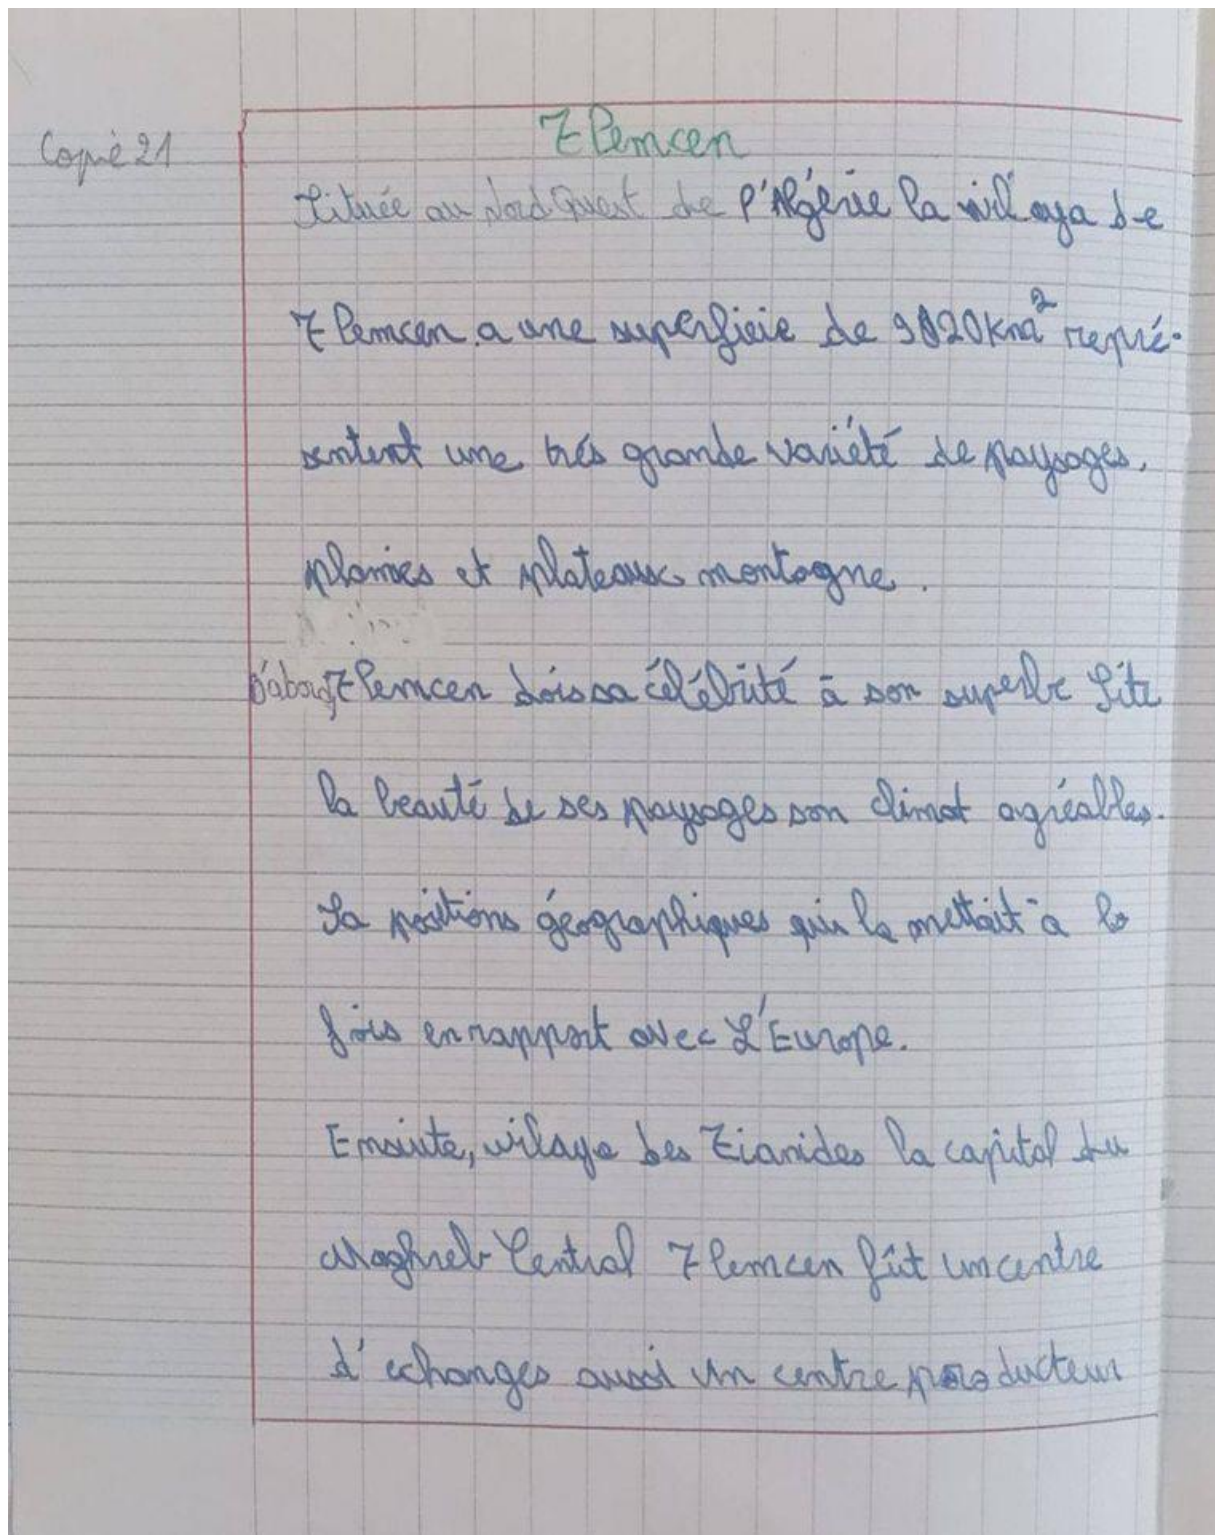 Copie 21
Tlemcen
Située au Nord Ouest de l'Algérie la wilaya de
Tlemcen a une superficie de 9020km² repré-
sentent une trés grande variété de paysages,
plaines et plateaux montagne.
D'abord Tlemcen dois sa célébrité à son superbe site
la beauté de ses paysages son climat agréables.
Sa positions géographiques qui la mettait à la
fois en rapport avec L'Europe.
Ensuite, vilaye des Zianides la capital du
Maghreb Central Tlemcen fût un centre
d'echanges aussi un centre producteur